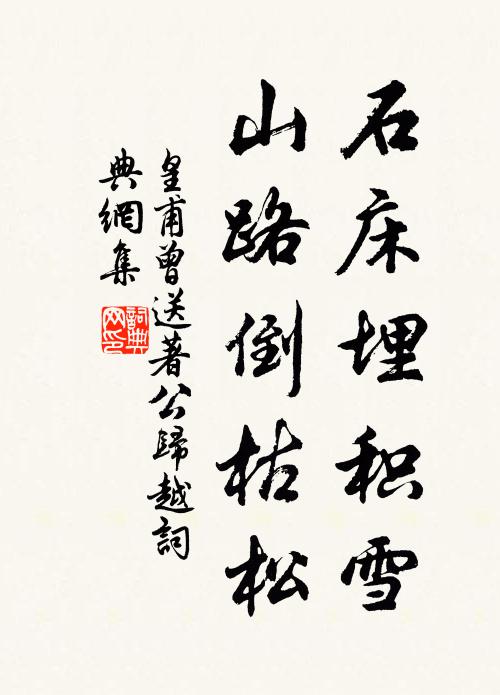 石床埋积雪
山路倒枯松
皇甫曾送著公歸越詞
典網集
詞典
网印